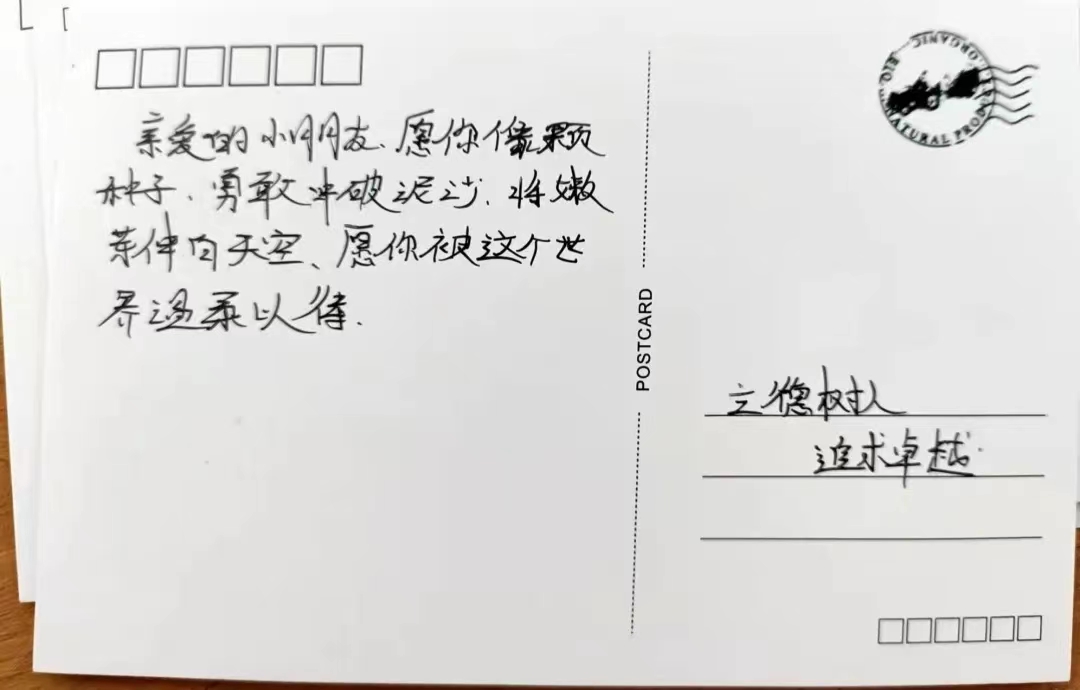 亲爱的小朋友、愿你像颗
种子、勇敢冲破泥沙、将嫩
芽伸向天空、愿你被这个世
界温柔以待.
POSTCARD
立德树人
追求卓越.
ORGANIC
BIO
NATURAL PROD